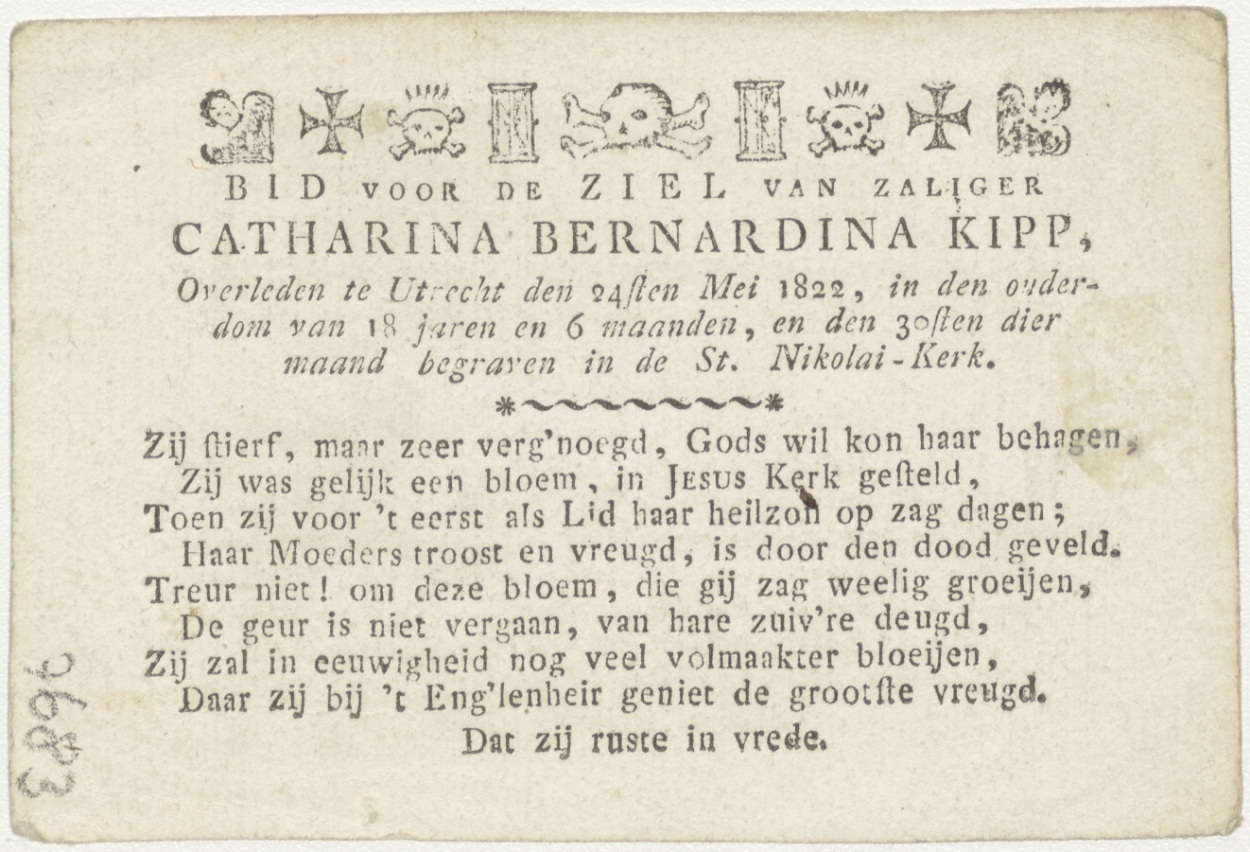 BID VOOR DE ZIEL VAN ZALIGER
CATHARINA BERNARDINA KIPP,
Overleden te Utrecht den 24ſten Mei 1822, in den ouder-
dom van 18 jaren en 6 maanden, en den 30ſten dier
maand begraven in de St. Nikolai-Kerk.
Zij ſtierf, maar zeer verg'noegd, Gods wil kon haar behagen,
Zij was gelijk een bloem, in JESUS Kerk geſteld,
Toen zij voor 't eerst als Lid haar heilzon op zag dagen;
Haar Moeders troost en vreugd, is door den dood geveld.
Treur niet! om deze bloem, die gij zag weelig groeijen,
De geur is niet vergaan, van hare zuiv're deugd,
Zij zal in eeuwigheid nog veel volmaakter bloeijen,
Daar zij bij 't Eng'lenheir geniet de grootſte vreugd.
Dat zij ruste in vrede.